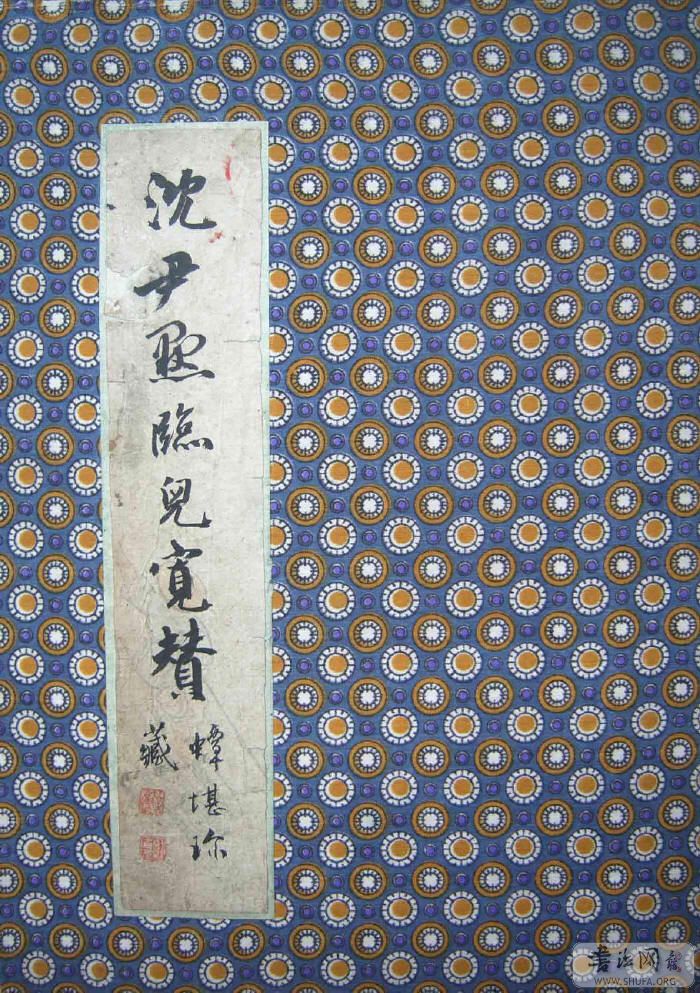 沈尹黙臨兒寬賛
蟫堪珎
藏
书法网
WWW.SHUFA.ORG